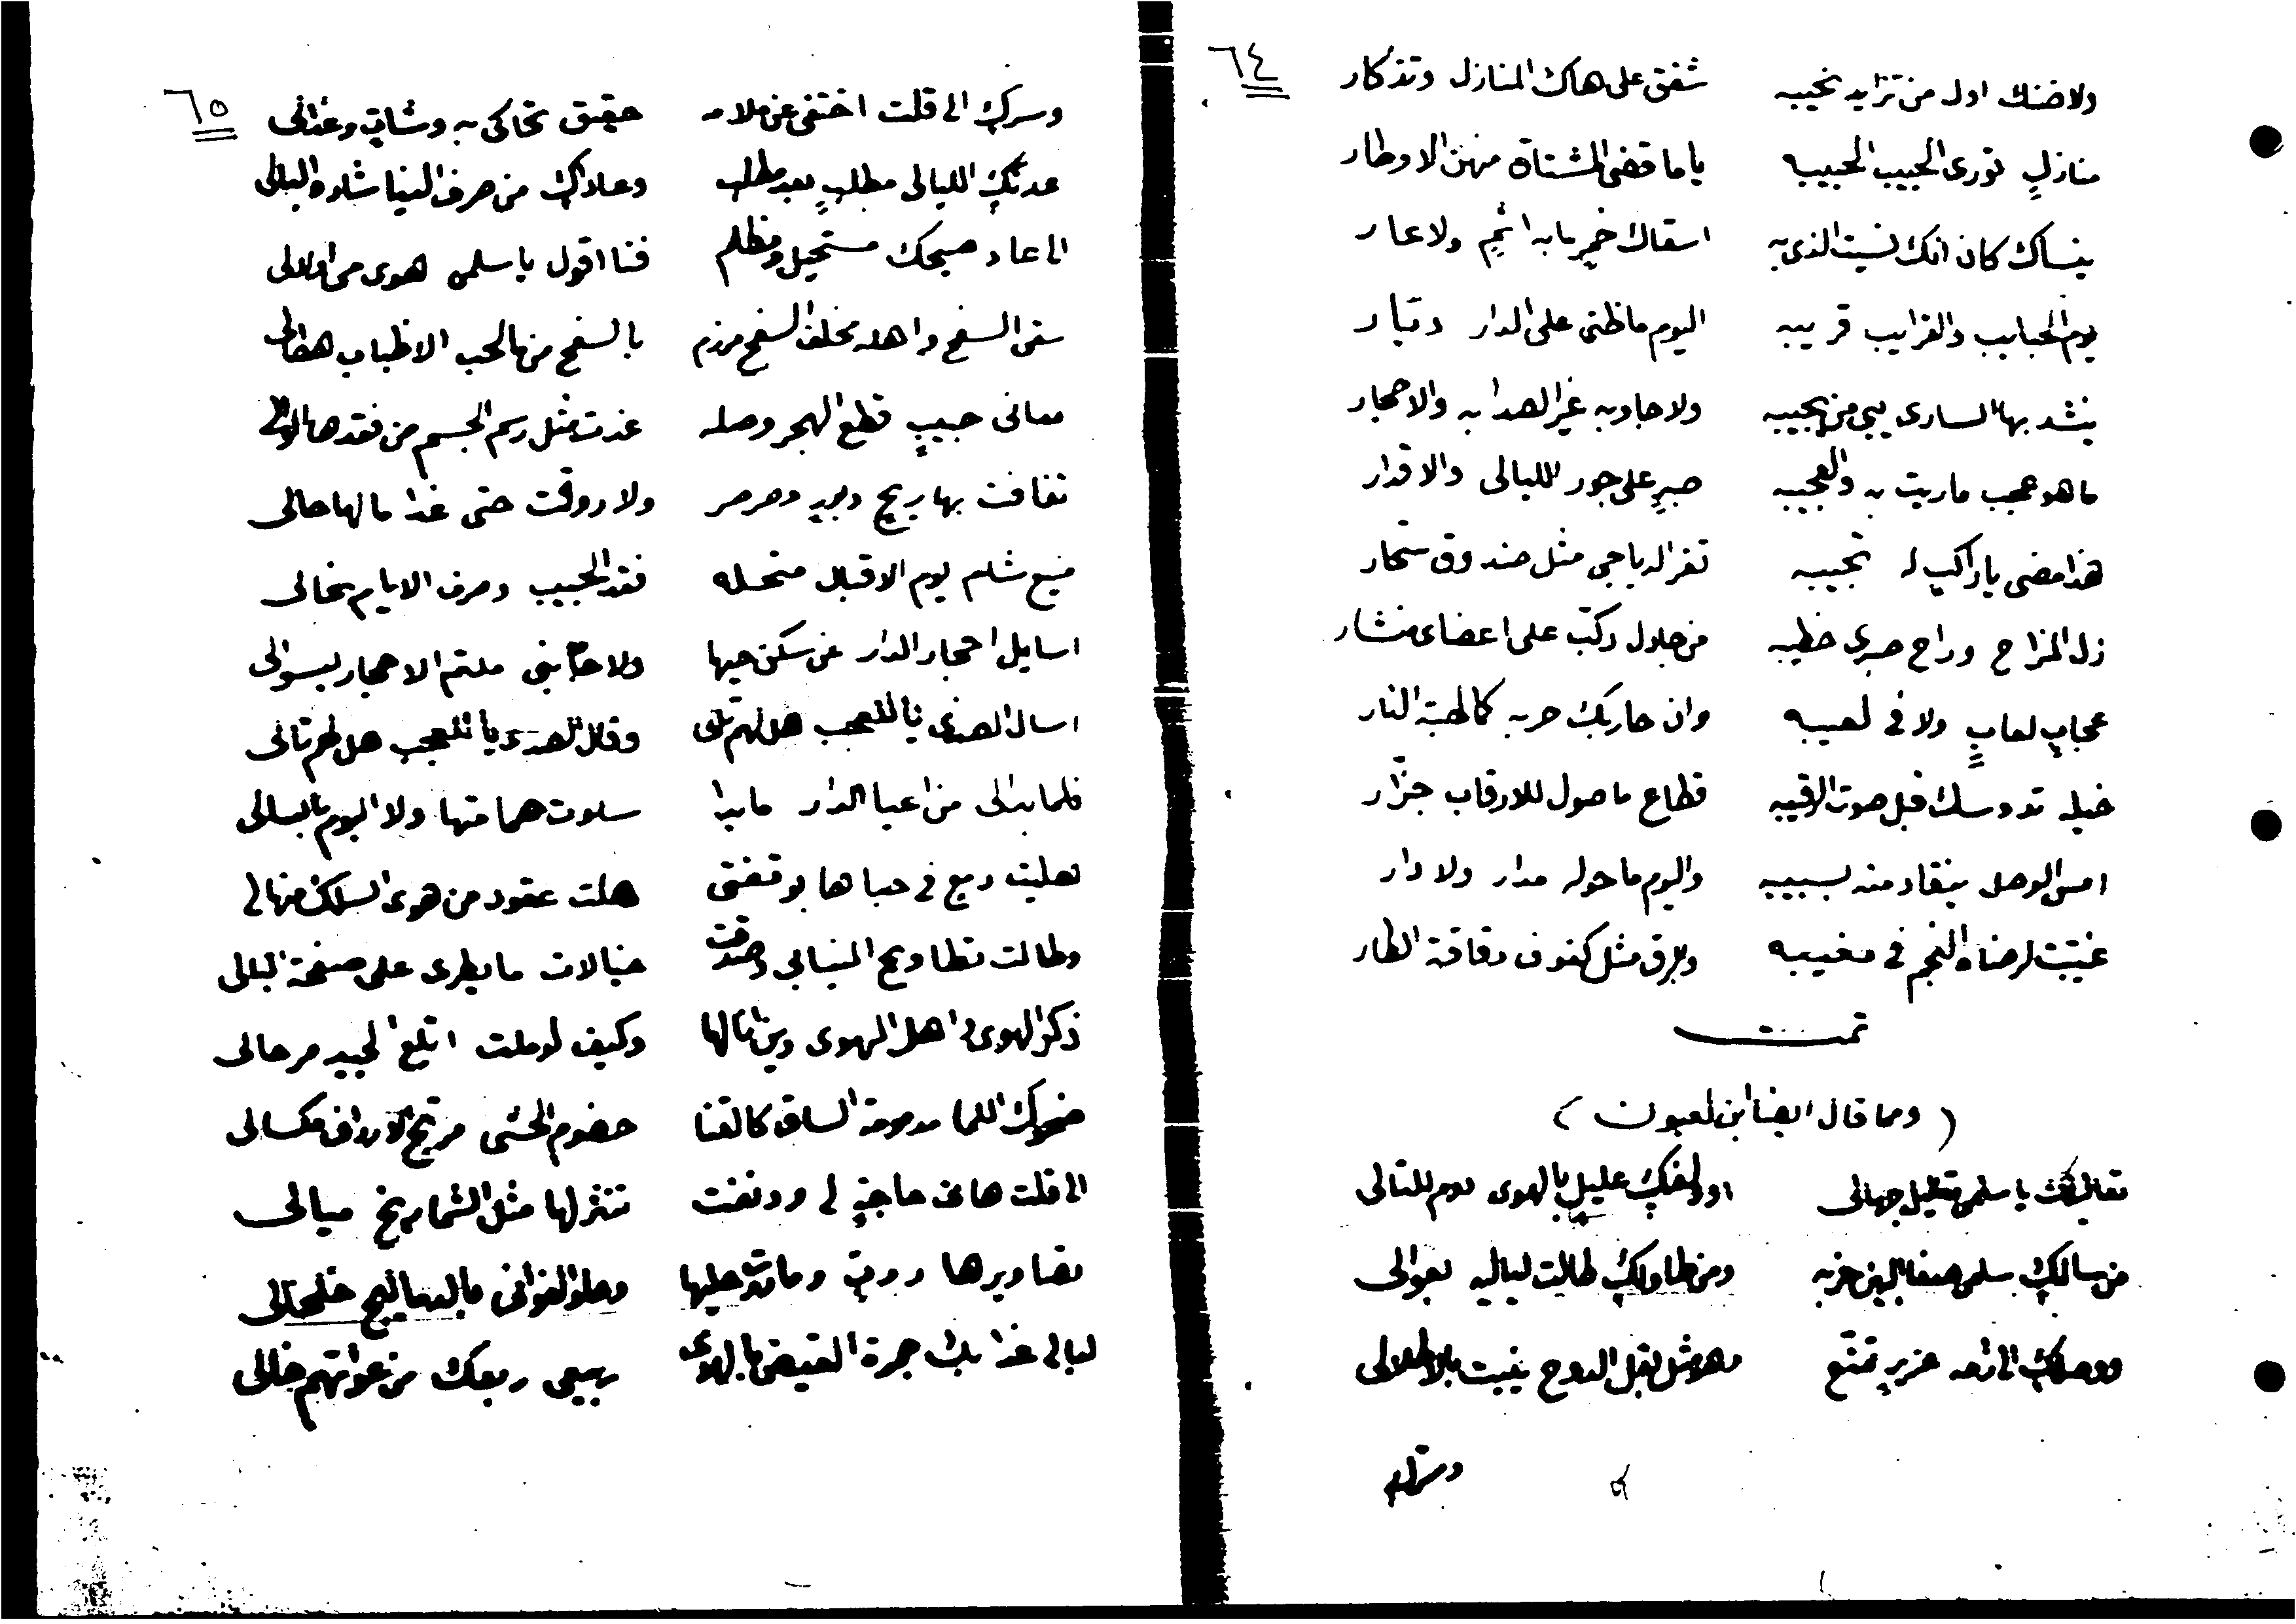 ٦٤
ولا ضنك اول من تزايد نحيبه شفق على هاك المنازل وتذكار
منازلٍ تورى الحبيب الحبيبه ياما قضى المشتاة منهن الاوطار
ينساك كان انك نسيت الذى به اسقاك خمرٍ ما به اثمٍ ولا عار
يوم الحبايب والقرايب قريبه اليوم ما ظنى على الدار ديّار
ينشد بها السارى يبى من يجيبه ولا جاوبه غير الصدا به والاحجار
ما هو عجب ماريت به والعجيبه صبرٍ على جور الليالى والاقدار
هذا مضى يا راكبٍ له نجيبه تفز له ياجى مثل صندوق سحّار
زل المزاح وراح صبرى خطيبه من جلول ركّب على اعضاى منشار
عجابٍ لعابٍ ولا فى لعيبه وان حاربك حربه كما لهبة النار
خيله تدوسك قبل صوت الرقيبه قطاع ما صول للارقاب جزّار
امس الوصل ينقاد منه بسبيبه واليوم ما حوله مدار ولا دار
غيّبت لرضاه النجم فى مغيبه وبرق مثل كفوف دقاقة الطار
تمت
( ومما قال ايضا ابن لعبون )
يا سلمى جهالى او عليلٍ بالهوى دوم للتالى
من سالك سلمى صفا البين حزبه ومن طاولك طالت لياليه بعوالى
ووصلك الى تمتّع وهو مثل نقل الدوح ينبت بالاطلالى
وسرك
٦٥
وسرك الى قلت اختفى عن ملامه حقيق تحاكى به وشاتى وعذالى
عدتك الليالى مطلبٍ بعد مطلب وعادك من صرف النيا شاده البالى
الى عاد صبحك مستحيل ومظلم فنا اقول يا سلمى هوى من اولالى
سقى السفح واهله مخلف السفح مرزم بالسفح من الحب الاظباب هطالى
معانى حبيبٍ قطع الهجر وصله غدت مثل رسم الجسم من فقدها
تعافت بها ريحٍ وبردٍ وصرصر ولا روقت حتى غدا ما لها حالى
منيع شلم يوم الاقبال فقد الحبيب وصرف الايام نحالى
اسايل احجار الدار عن سكن حيها ولا جابنى ملتم الاحجار لسوالى
اسال الصدى يا للعجب هل لهم تلى وقال الصدى يا للعجب هل لهم تالى
فلما بدا لى من اعيا الدار مابدا سلوت هما متها ولا اليوم بالسالى
تهليت دمع فى حباها بوقفتى هلت عقود من هوى السلك منها لى
وطالت تطاويح النيابى وصدقت خيالات ما يطرى على صفحة البالى
ذكر الهوى واهل الهوى وين وكيف لوملت اتلع الجيد مرحالى
ضحوك اللما مدموجة الساق كالقنا هضوم الحشى مرتج الارداف مكسالى
الى قلت هاتى حاجةٍ لى وودنفت تنثر لها مثل الشماريخ ميالى
تصاويرها روق وما حليها وحلو الغوانى
ليالى غذا بك جمرة القيض بالهوى ربيعى ربعك من عواتهم خالى